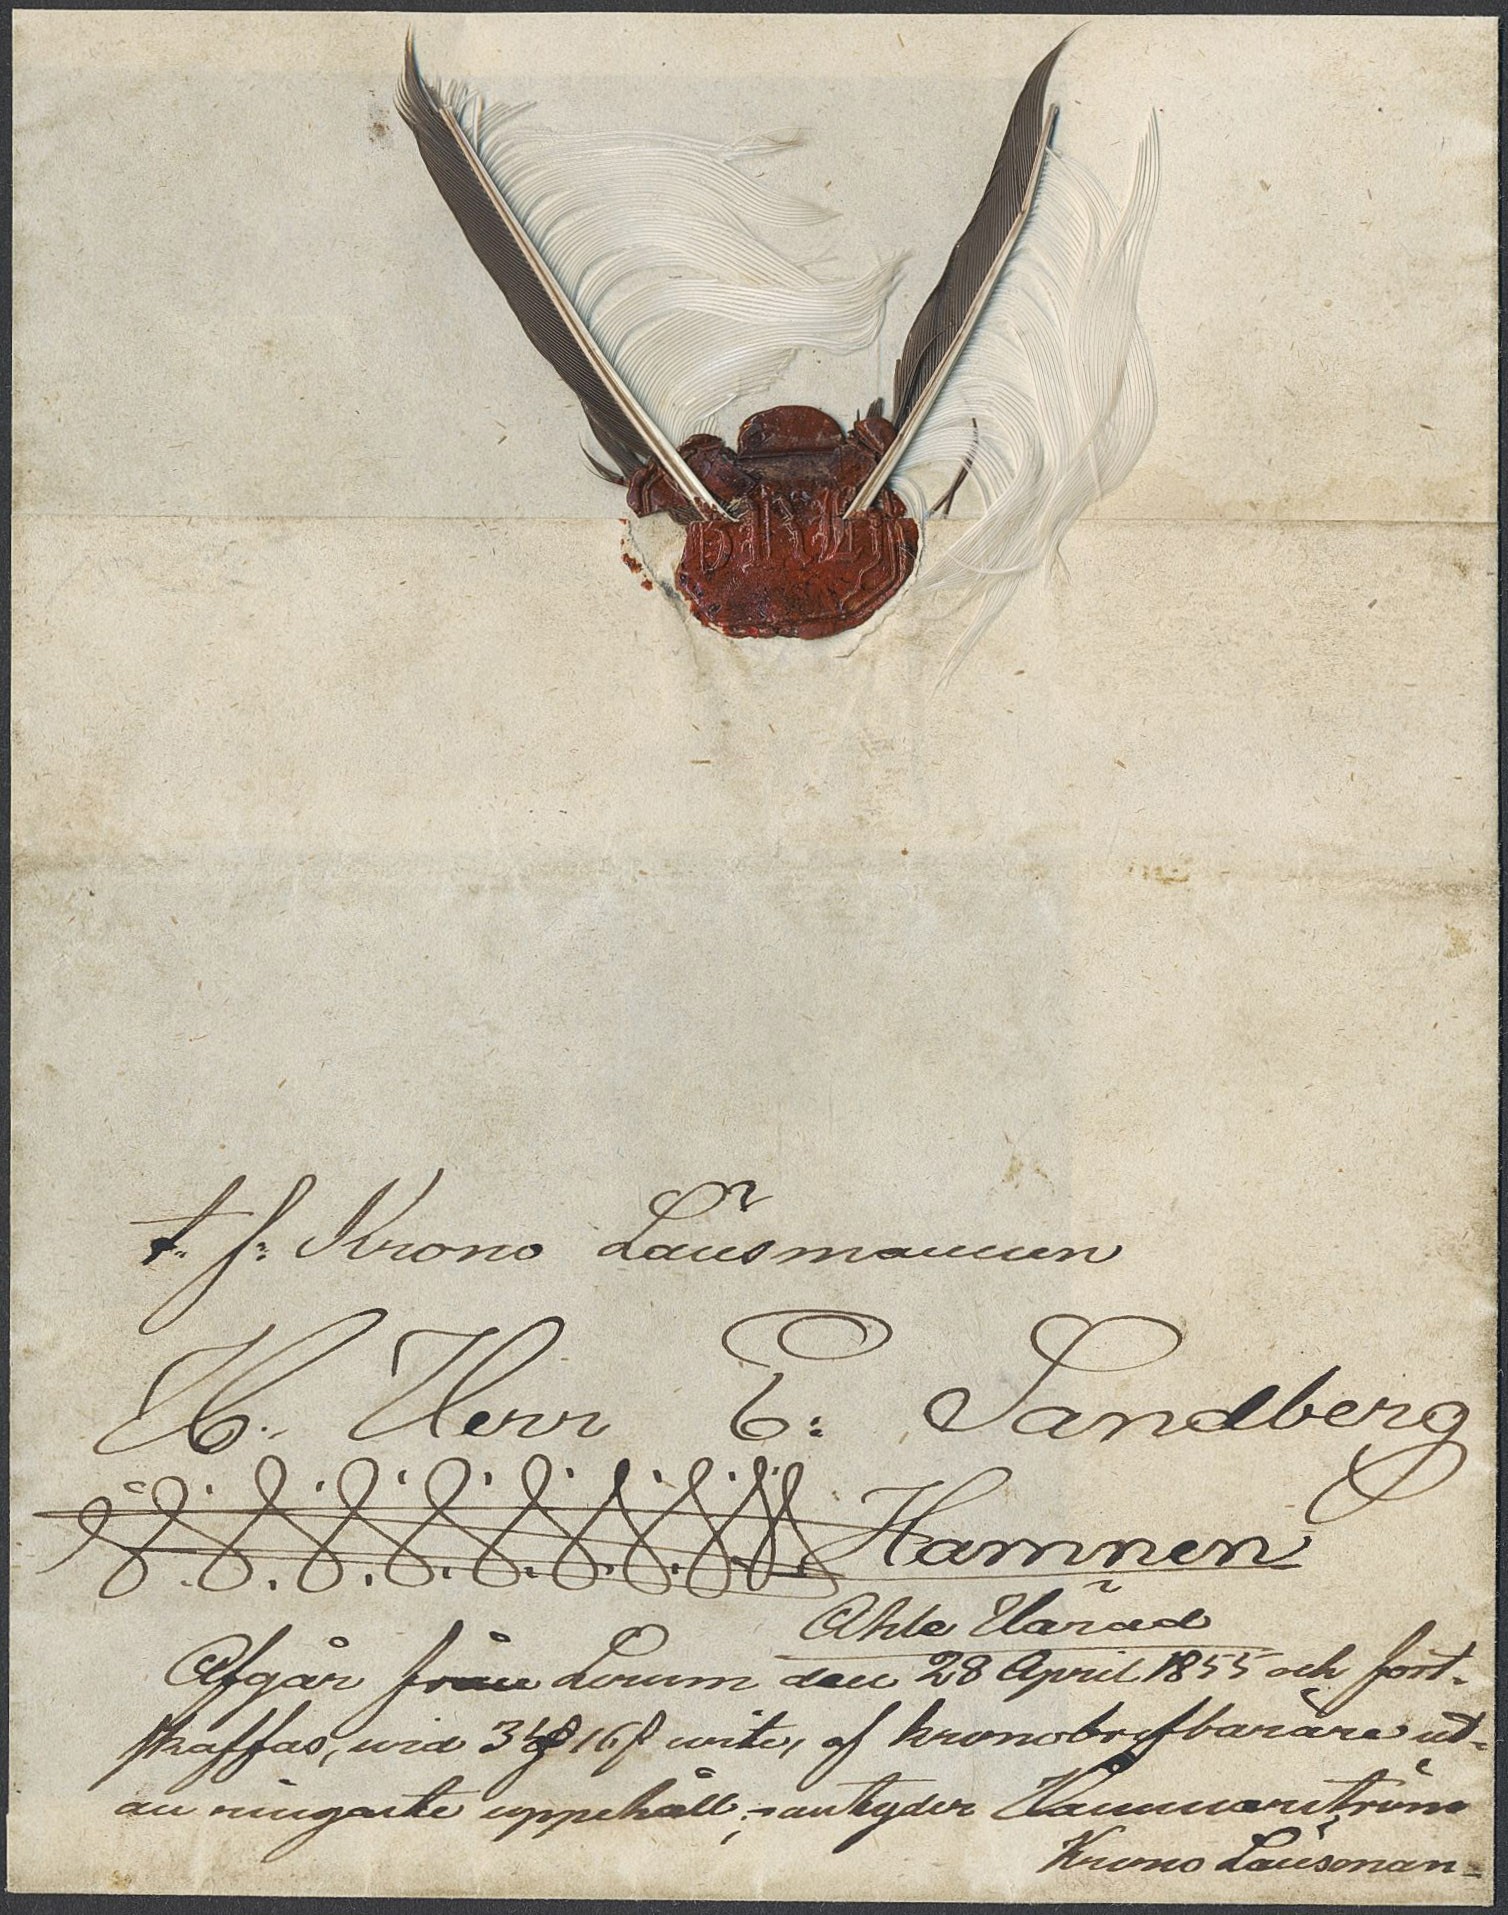 t. f: Krono Länsmannen
H. Herr E: Sandberg
Hamnen
Ahle Härad
Afgår från Lerum den 28 April 1855 och fort-
skaffas, wid 3 16 f wite, af kronobrefbärare ut-
an ringaste uppehåll; antyder Hammarström
Krono Länsman